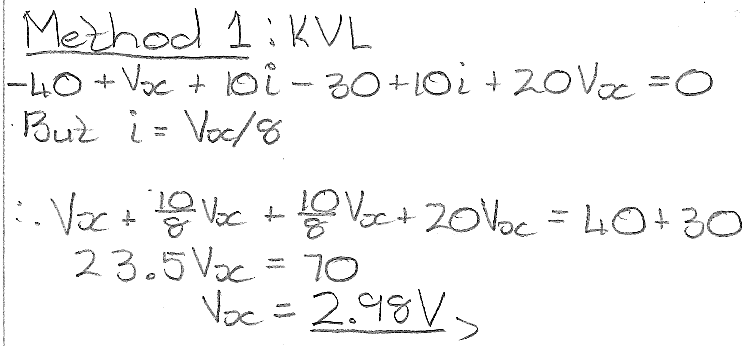 Method 1: KVL
-40 + Vx + 10i - 30 + 10i + 20Vx = 0
But i = Vx/8
∴ Vx + 10/8 Vx + 10/8 Vx + 20Vx = 40 + 30
23.5Vx = 70
Vx = 2.98V